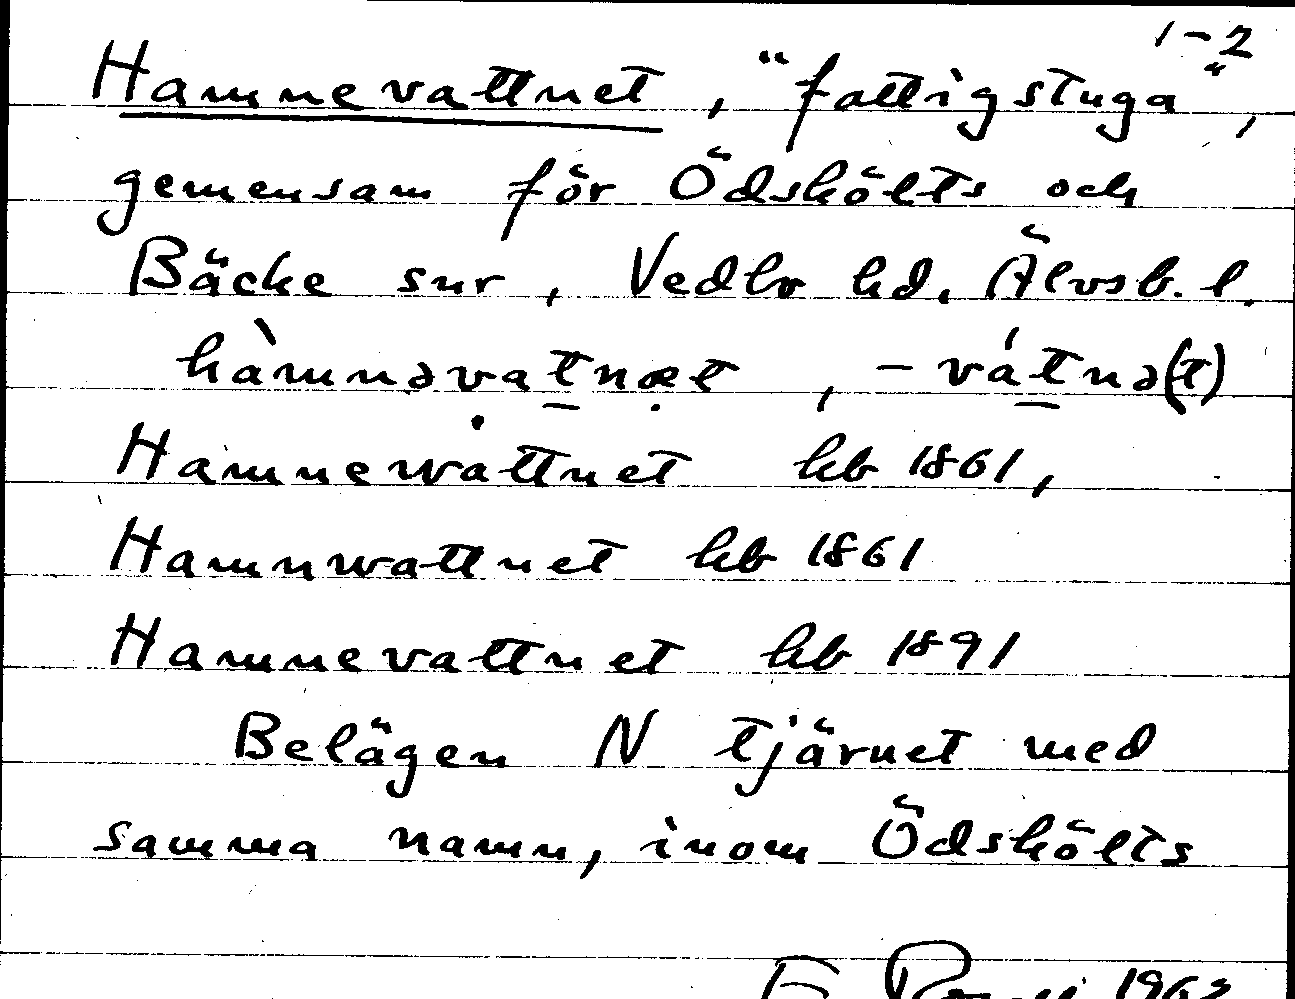 1-2
Hamnevattnet, "fattigstuga",
gemensam för Ödskölts och
Bäcke snr, Vedbo hd. Älvsb. l.
hàmnəvatnæt, -vátnə(t)
Hamnewattnet hb 1861,
Hamnwattnet hb 1861
Hamnevattnet hb 1891
Belägen N tjärnet med
samma namn, inom Ödskölts